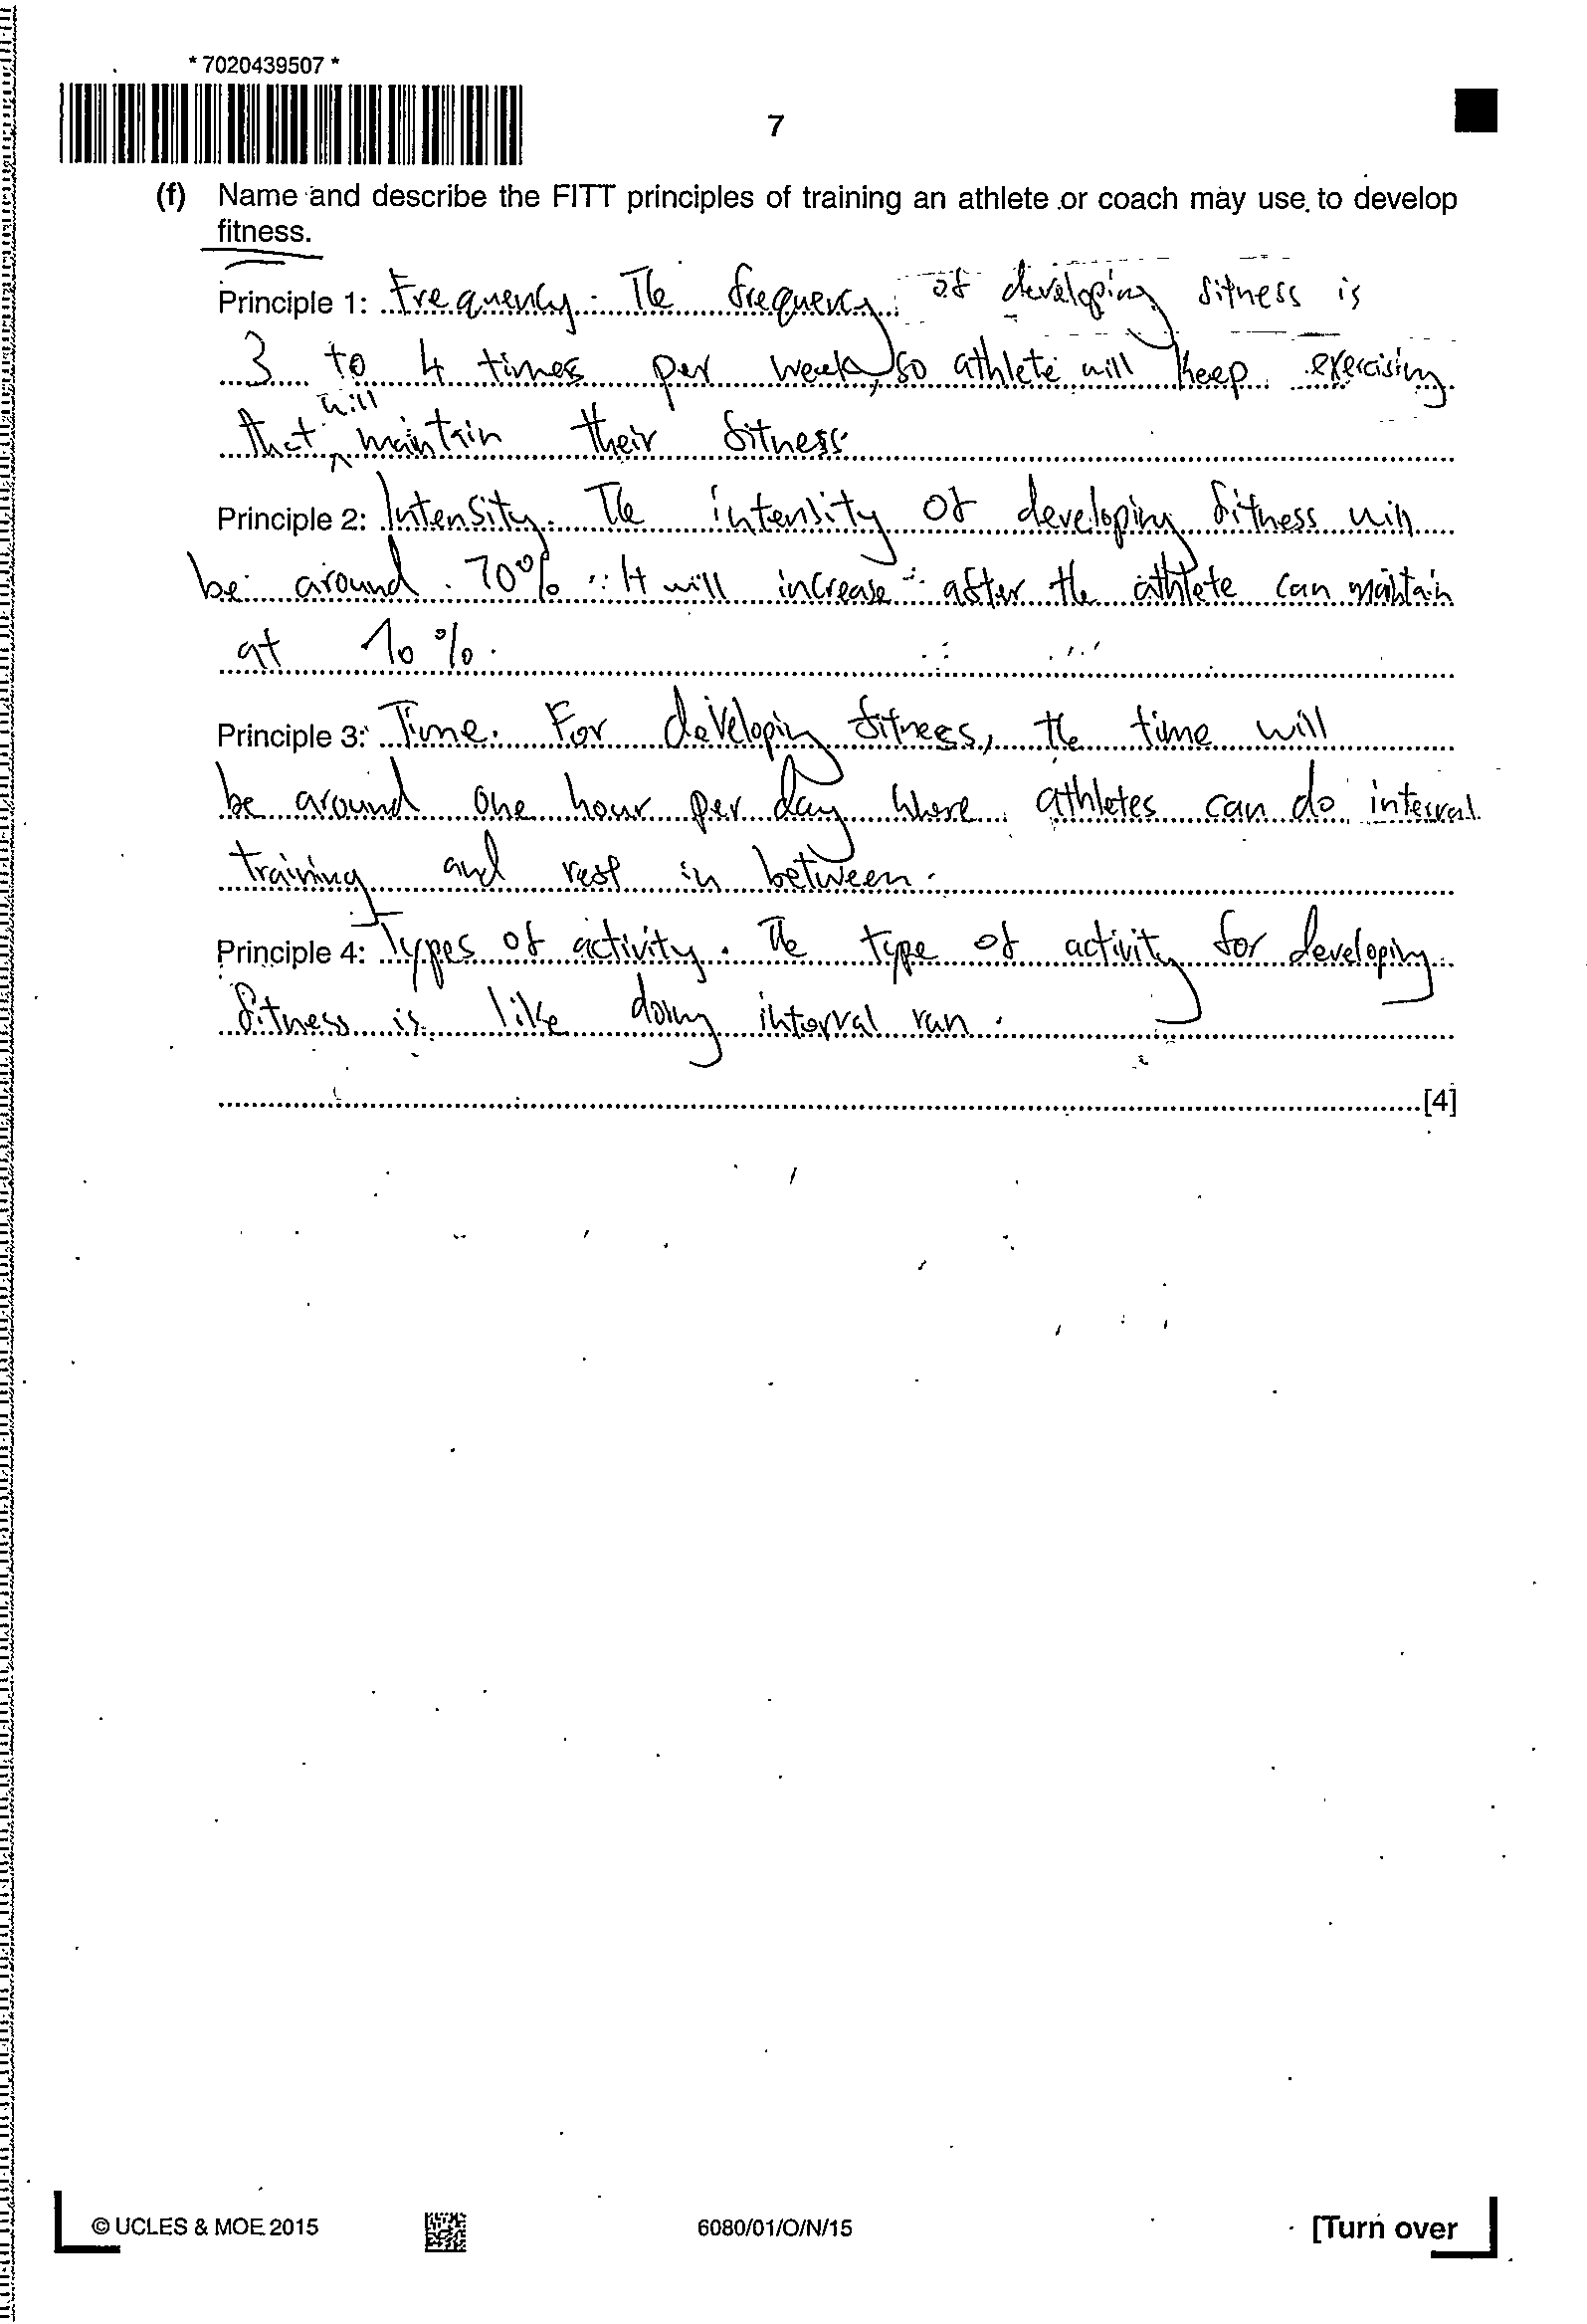 *7020439507*
7
(f) Name and describe the FITT principles of training an athlete or coach may use to develop
fitness.
Principle 1: Frequency. The frequency of developing fitness is
3 to 4 times per week, so athlete will keep exercising
that will maintain their fitness.
Principle 2: Intensity. The intensity of developing fitness will
be around 70%. It will increase after the athlete can maintain
at 70%.
Principle 3: Time. For developing fitness, the time will
be around one hour per day where athletes can do interval
training and rest in between.
Principle 4: Types of activity. The type of activity for developing
fitness is like doing interval run.
[4]
© UCLES & MOE 2015
6080/01/O/N/15
[Turn over